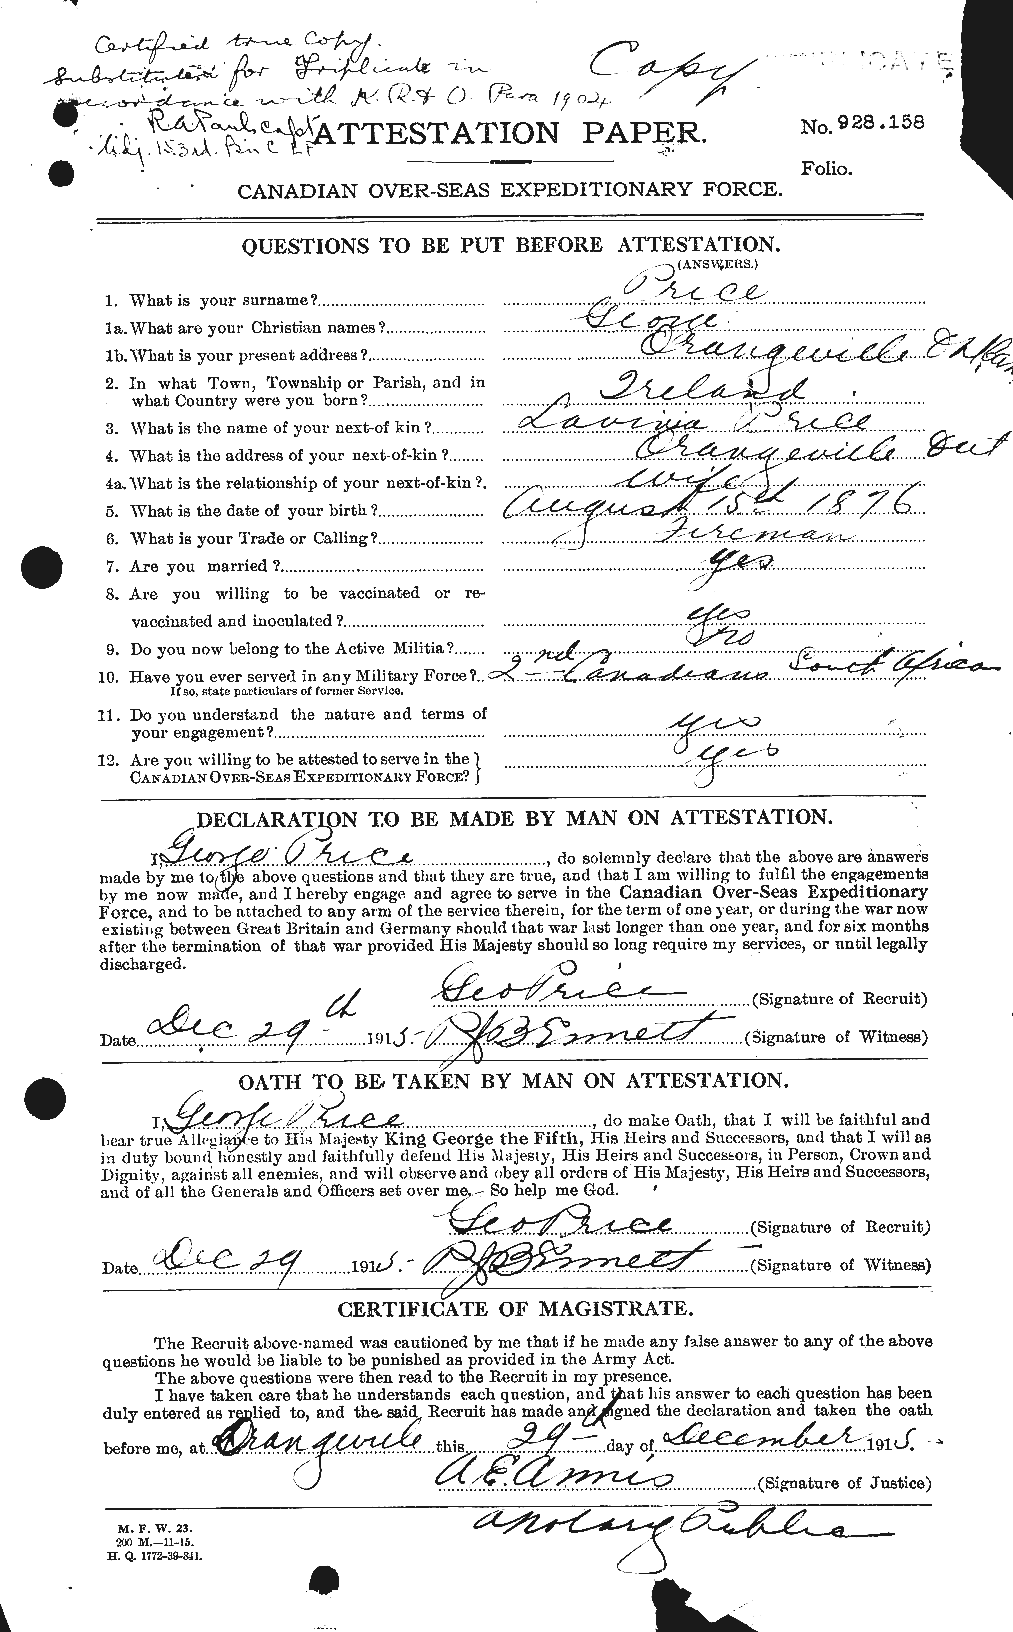 Certified true Copy.
Substituted for Triplicate in
accordance with K. R & O. Para 1904
R A Paul Capt
Adj. 153rd. Bn C E F
Copy
ATTESTATION PAPER.
No. 928.158
Folio.
CANADIAN OVER-SEAS EXPEDITIONARY FORCE.
QUESTIONS TO BE PUT BEFORE ATTESTATION.
(ANSWERS.)
1. What is your surname? Price
1a. What are your Christian names? George
1b. What is your present address? Orangeville
2. In what Town, Township or Parish, and in
what Country were you born? Ireland
3. What is the name of your next-of kin? Lavinia Price
4. What is the address of your next-of-kin? Orangeville Ont
4a. What is the relationship of your next-of-kin? wife
5. What is the date of your birth? August 15th 1876
6. What is your Trade or Calling? Fireman
7. Are you married? yes
8. Are you willing to be vaccinated or re-
vaccinated and inoculated? yes
9. Do you now belong to the Active Militia? No
10. Have you ever served in any Military Force? 2nd Canadians South Africa
If so, state particulars of former Service.
11. Do you understand the nature and terms of
your engagement? yes
12. Are you willing to be attested to serve in the
CANADIAN OVER-SEAS EXPEDITIONARY FORCE? yes
DECLARATION TO BE MADE BY MAN ON ATTESTATION.
I, George Price, do solemnly declare that the above are answers
made by me to the above questions and that they are true, and that I am willing to fulfil the engagements
by me now made, and I hereby engage and agree to serve in the Canadian Over-Seas Expeditionary
Force, and to be attached to any arm of the service therein, for the term of one year, or during the war now
existing between Great Britain and Germany should that war last longer than one year, and for six months
after the termination of that war provided His Majesty should so long require my services, or until legally
discharged.
Geo Price (Signature of Recruit)
Date Dec 29th 1915 R J B Emmett (Signature of Witness)
OATH TO BE TAKEN BY MAN ON ATTESTATION.
I, George Price, do make Oath, that I will be faithful and
bear true Allegiance to His Majesty King George the Fifth, His Heirs and Successors, and that I will as
in duty bound honestly and faithfully defend His Majesty, His Heirs and Successors, in Person, Crown and
Dignity, against all enemies, and will observe and obey all orders of His Majesty, His Heirs and Successors,
and of all the Generals and Officers set over me. So help me God.
Geo Price (Signature of Recruit)
Date Dec 29 1915.- R J B Emmett (Signature of Witness)
CERTIFICATE OF MAGISTRATE.
The Recruit above-named was cautioned by me that if he made any false answer to any of the above
questions he would be liable to be punished as provided in the Army Act.
The above questions were then read to the Recruit in my presence.
I have taken care that he understands each question, and that his answer to each question has been
duly entered as replied to, and the said Recruit has made and signed the declaration and taken the oath
before me, at Orangeville this 29th day of December 1915.
A. E. Annis (Signature of Justice)
a Notary Public
M. F. W. 23.
200 M.—11-15.
H. Q. 1772-39-841.